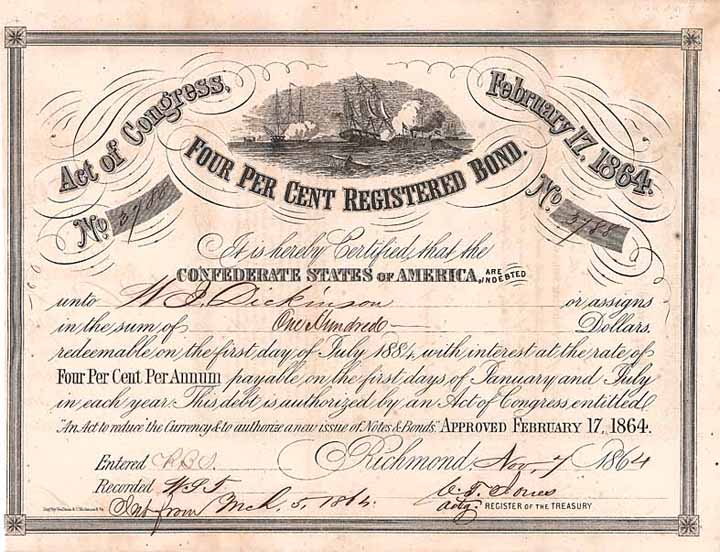 Act of Congress,
February 17, 1864.
FOUR PER CENT REGISTERED BOND.
No. 3788
No. 3788
It is hereby Certified, that the
CONFEDERATE STATES OF AMERICA, ARE INDEBTED
unto W. J. Dickinson or assigns
in the sum of One Hundred Dollars.
redeemable on the first day of July 1884, with interest at the rate of
Four Per Cent Per Annum payable on the first days of January and July
in each year. This debt is authorized by an Act of Congress, entitled
"An Act to reduce the Currency & to authorize a new issue of Notes & Bonds." APPROVED FEBRUARY 17, 1864.
Entered Richmond, Nov, 7 1864
Recorded
Int from Mch. 5, 1864. C. T. Jones
actg REGISTER OF THE TREASURY